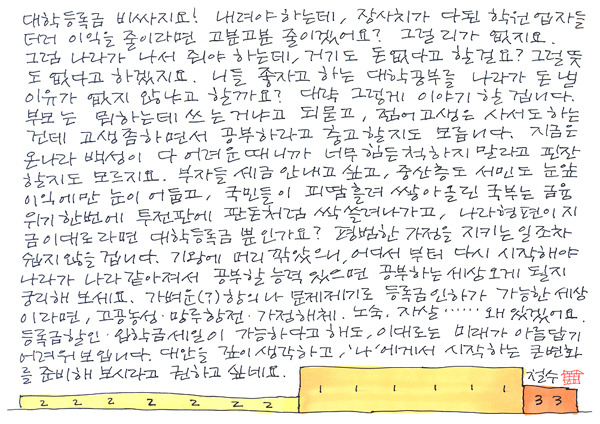 대학등록금 비싸지요! 내려야 하는데, 장사치가 다된 학원업자들
더러 이익을 줄이라면 고분고분 줄이겠어요? 그럴리가 없지요.
그럼 나라가 나서 줘야 하는데, 거기도 돈없다고 할걸요? 그럴뜻
도 없다고 하겠지요. 니들 좋자고 하는 대학공부를 나라가 돈 낼
이유가 없지 않냐고 할까요? 대략 그렇게 이야기 할 겁니다.
부모는 뭐하는데 쓰는거냐고 되묻고, 젊어고생은 사서도 하는
건데 고생좀하면서 공부하라고 충고할지도 모릅니다. 지금은
온나라 백성이 다 어려운 때니까 너무 힘든척하지 말라고 핀잔
할지도 모르지요. 부자들 세금 안내고 싶고, 중산층도 서민도 눈앞
이익에만 눈이 어둡고, 국민들이 피땀흘려 쌓아올린 국부는 금융
위기 한번에 투전판에 판돈처럼 싹 쓸려나가고, 나라형편이 지
금 이대로라면 대학등록금 뿐인가요? 평범한 가정을 지키는 일조차
쉽지 않을 겁니다. 기왕에 머리 깎았으니, 어디서 부터 다시 시작해야
나라가 나라같아져서 공부할 능력있으면 공부하는 세상 오게 될지
궁리해 보세요. 가벼운(?) 항의나 문제제기로 등록금인하가 가능한 세상
이라면, 고공농성·망루항전·가정해체·노숙·자살…… 왜 있겠어요.
등록금할인·장학금세일이 가능하다고 해도, 이대로는 미래가 아름답기
어려워 보입니다. 대안을 깊이 생각하고, '나'에게서 시작하는 큰변화
를 준비해 보시라고 권하고 싶네요.
철수
2 2 2 2 2 2 2 1 1 1 1 1 1 3 3